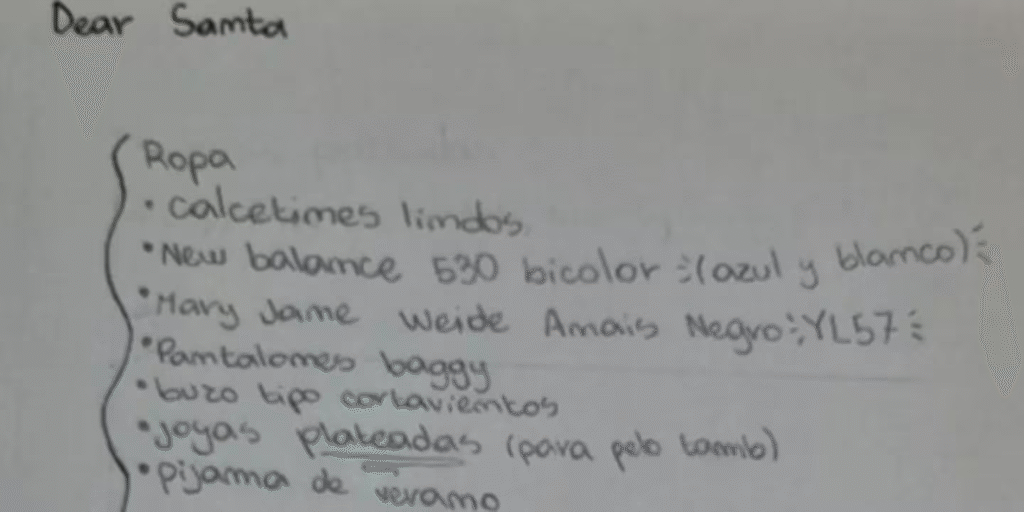 Dear Santa
Ropa
• calcetines lindos
• New balance 530 bicolor (azul y blanco)
• Mary Jane Weide Amais Negro YL57
• Pantalones baggy
• buzo tipo cortavientos
• joyas plateadas (para pelo tamb)
• pijama de verano